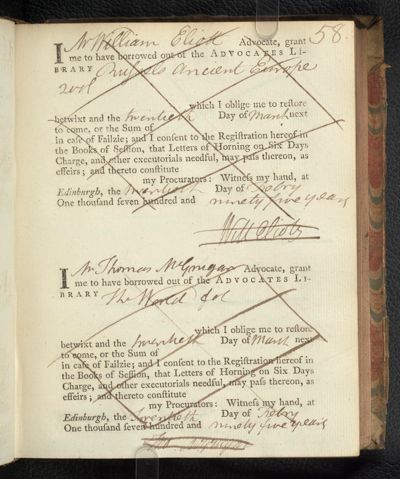 58.
I Mr William Eliott Advocate, grant
me to have borrowed out of the ADVOCATES LI-
BRARY Russels Ancient Europe
2 vol
which I oblige me to restore
betwixt and the twentieth Day of March next
to come, or the Sum of
in case of Failzie; and I consent to the Registration hereof in
the Books of Session, that Letters of Horning on Six Days
Charge, and other executorials needful, may pass thereon, as
effeirs; and thereto constitute
my Procurators: Witness my hand, at
Edinburgh, the twentieth Day of Febry
One thousand seven hundred and ninety five years
Will Eliott
I Mr Thomas McGrugar Advocate, grant
me to have borrowed out of the ADVOCATES LI-
BRARY The World
which I oblige me to restore
betwixt and the twentieth Day of March next
to come, or the Sum of
in case of Failzie; and I consent to the Registration hereof in
the Books of Session, that Letters of Horning on Six Days
Charge, and other executorials needful, may pass thereon, as
effeirs; and thereto constitute
my Procurators: Witness my hand, at
Edinburgh, the twentieth Day of Febry
One thousand seven hundred and ninety five years
Tho McGrugar